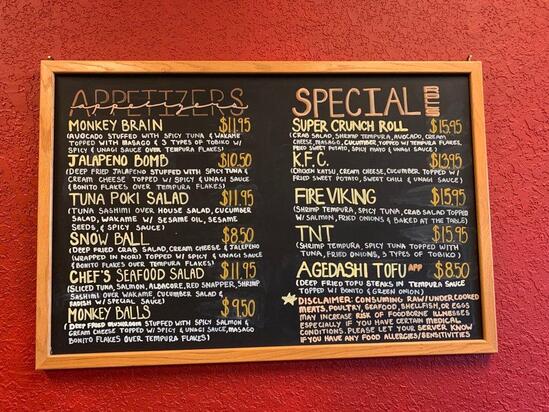 APPETIZERS
Appetizers
MONKEY BRAIN $11.95
(AVOCADO STUFFED WITH SPICY TUNA & WAKAME
TOPPED WITH MASAGO & 3 TYPES OF TOBIKO W/
SPICY & UNAGI SAUCE OVER TEMPURA FLAKES)
JALAPENO BOMB $10.50
(DEEP FRIED JALAPENO STUFFED WITH SPICY TUNA &
CREAM CHEESE TOPPED W/ SPICY & UNAGI SAUCE
& BONITO FLAKES OVER TEMPURA FLAKES)
TUNA POKI SALAD $11.95
(TUNA SASHIMI OVER HOUSE SALAD, CUCUMBER
SALAD, WAKAME W/ SESAME OIL, SESAME
SEEDS, & SPICY SAUCE)
SNOW BALL $8.50
(DEEP FRIED CRAB SALAD, CREAM CHEESE & JALAPENO
(WRAPPED IN NORI) TOPPED W/ SPICY & UNAGI SAUCE
& BONITO FLAKES OVER TEMPURA FLAKES)
CHEF'S SEAFOOD SALAD $11.95
(SLICED TUNA, SALMON, ALBACORE, RED SNAPPER, SHRIMP
SASHIMI OVER WAKAME, CUCUMBER SALAD &
RADISH W/ SPECIAL SAUCE)
MONKEY BALLS $9.50
(DEEP FRIED MUSHROOM STUFFED WITH SPICY SALMON &
CREAM CHEESE TOPPED W/ SPICY & UNAGI SAUCE, MASAGO
BONITO FLAKES OVER TEMPURA FLAKES)
SPECIAL ROLLS
SUPER CRUNCH ROLL $15.95
(CRAB SALAD, SHRIMP TEMPURA, AVOCADO, CREAM
CHEESE, MASAGO, CUCUMBER, TOPPED W/ TEMPURA FLAKES,
FRIED SWEET POTATO, SPICY MAYO & UNAGI SAUCE)
K.F.C. $13.95
(CHICKEN KATSU, CREAM CHEESE, CUCUMBER TOPPED W/
FRIED SWEET POTATO, SWEET CHILI & UNAGI SAUCE)
FIRE VIKING $15.95
(SHRIMP TEMPURA, SPICY TUNA, CRAB SALAD TOPPED
W/ SALMON, FRIED ONIONS & BAKED AT THE TABLE)
TNT $15.95
(SHRIMP TEMPURA, SPICY TUNA TOPPED WITH
TUNA, FRIED ONIONS, 3 TYPES OF TOBIKO)
AGEDASHI TOFU APP $8.50
(DEEP FRIED TOFU STEAKS IN TEMPURA SAUCE
TOPPED W/ BONITO & GREEN ONION)
DISCLAIMER: CONSUMING RAW/UNDERCOOKED
MEATS, POULTRY, SEAFOOD, SHELLFISH, OR EGGS
MAY INCREASE RISK OF FOODBORNE ILLNESSES
ESPECIALLY IF YOU HAVE CERTAIN MEDICAL
CONDITIONS. PLEASE LET YOUR SERVER KNOW
IF YOU HAVE ANY FOOD ALLERGIES/SENSITIVITIES